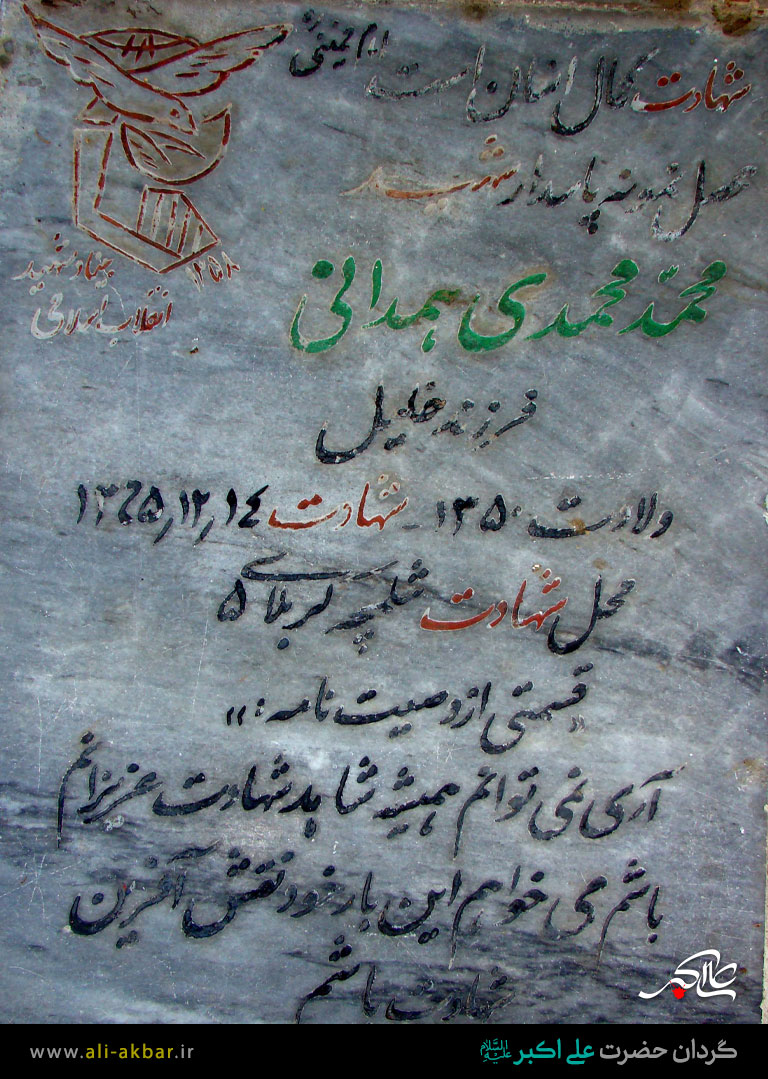 شهادت کمال انسان است امام خمینی ره
محصل نمونه پاسدار شهید
محمّد محمدی همدانی
بنیاد شهید ۱۳۵۸
انقلاب اسلامی
فرزند خلیل
ولادت ۱۳۵۰ - شهادت ۱۳٦۵٫۱۲٫۱٤
محل شهادت شلمچه کربلای ۵
«قسمتی از وصیت نامه:»
آری نمی توانم همیشه شاهد شهادت عزیزانم
باشم می خواهم این بار خود نقش آفرین
شهادت باشم
علی اکبر
گردان حضرت علی اکبر علیه السلام
www.ali-akbar.ir